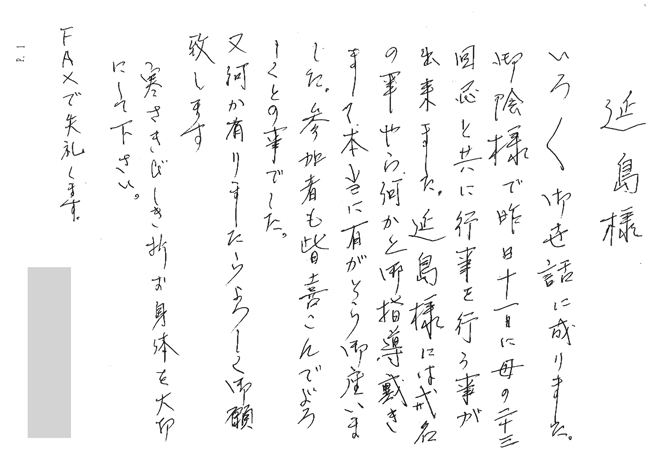 近島様
いろ〱御世話に成りました。
御陰様で昨日十一日に母の二十三
回忌と共に行事を行う事が
出来ました。近島様には戒名
の事やら何かと御指導戴き
まして本当に有がとうら御座いま
した。参加者も皆喜こんでよろ
しくとの事でした。
又何か有りましたらよろしく御願
致します
寒さきびしき折お身体を大切
にして下さい。
FAXで失礼します。
P.1